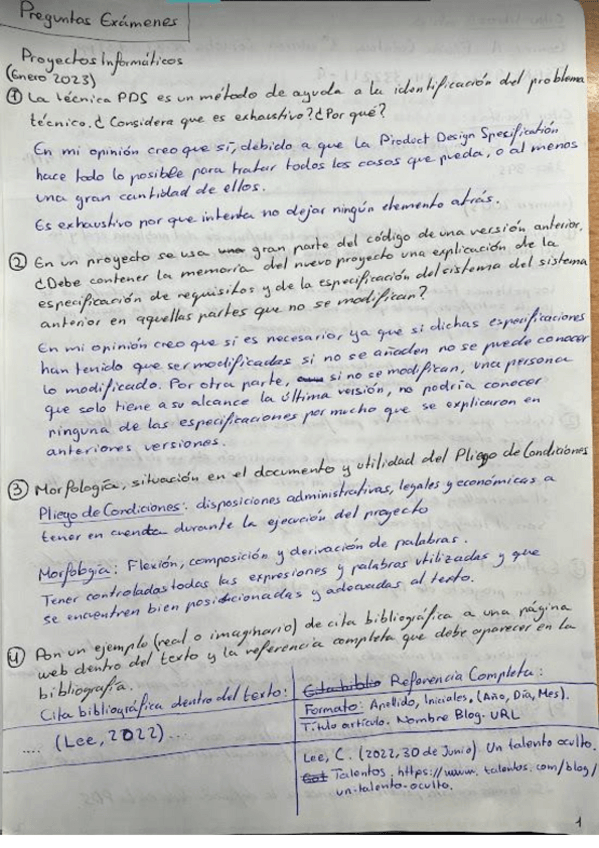 Preguntas Exámenes
Proyectos Informáticos
(Enero 2023)
① La técnica PDS es un método de ayuda a la identificación del problema
técnico. ¿Considera que es exhaustivo? ¿Por qué?
En mi opinión creo que sí, debido a que la Product Design Specification
hace todo lo posible para tratar todos los casos que pueda, o al menos
una gran cantidad de ellos.
Es exhaustivo por que intenta no dejar ningún elemento atrás.
② En un proyecto se usa gran parte del código de una versión anterior.
¿Debe contener la memoria del nuevo proyecto una explicación de la
especificación de requisitos y de la especificación del sistema del sistema
anterior en aquellas partes que no se modifican?
En mi opinión creo que si es necesario, ya que si dichas especificaciones
han tenido que ser modificadas si no se añaden no se puede conocer
lo modificado. Por otra parte, si no se modifican, una persona
que solo tiene a su alcance la última versión, no podría conocer
ninguna de las especificaciones por mucho que se explicaron en
anteriores versiones.
③ Morfología, situación en el documento y utilidad del Pliego de Condiciones
Pliego de Condiciones: disposiciones administrativas, legales y económicas a
tener en cuenta durante la ejecución del proyecto
Morfología: Flexión, composición y derivación de palabras.
Tener controladas todas las expresiones y palabras utilizadas y que
se encuentren bien posicionadas y adecuadas al texto.
④ Pon un ejemplo (real o imaginario) de cita bibliográfica a una página
web dentro del texto y la referencia completa que debe aparecer en la
bibliografía.
Cita bibliográfica dentro del texto:
.... (Lee, 2022)...
Cita biblio Referencia Completa:
Formato: Apellido, Iniciales, (Año, Día, Mes).
Título artículo. Nombre Blog. URL
Lee, C. (2022, 30 de Junio) Un talento oculto.
Talentos. https://www.talentos.com/blog/
un-talento-oculto.
1